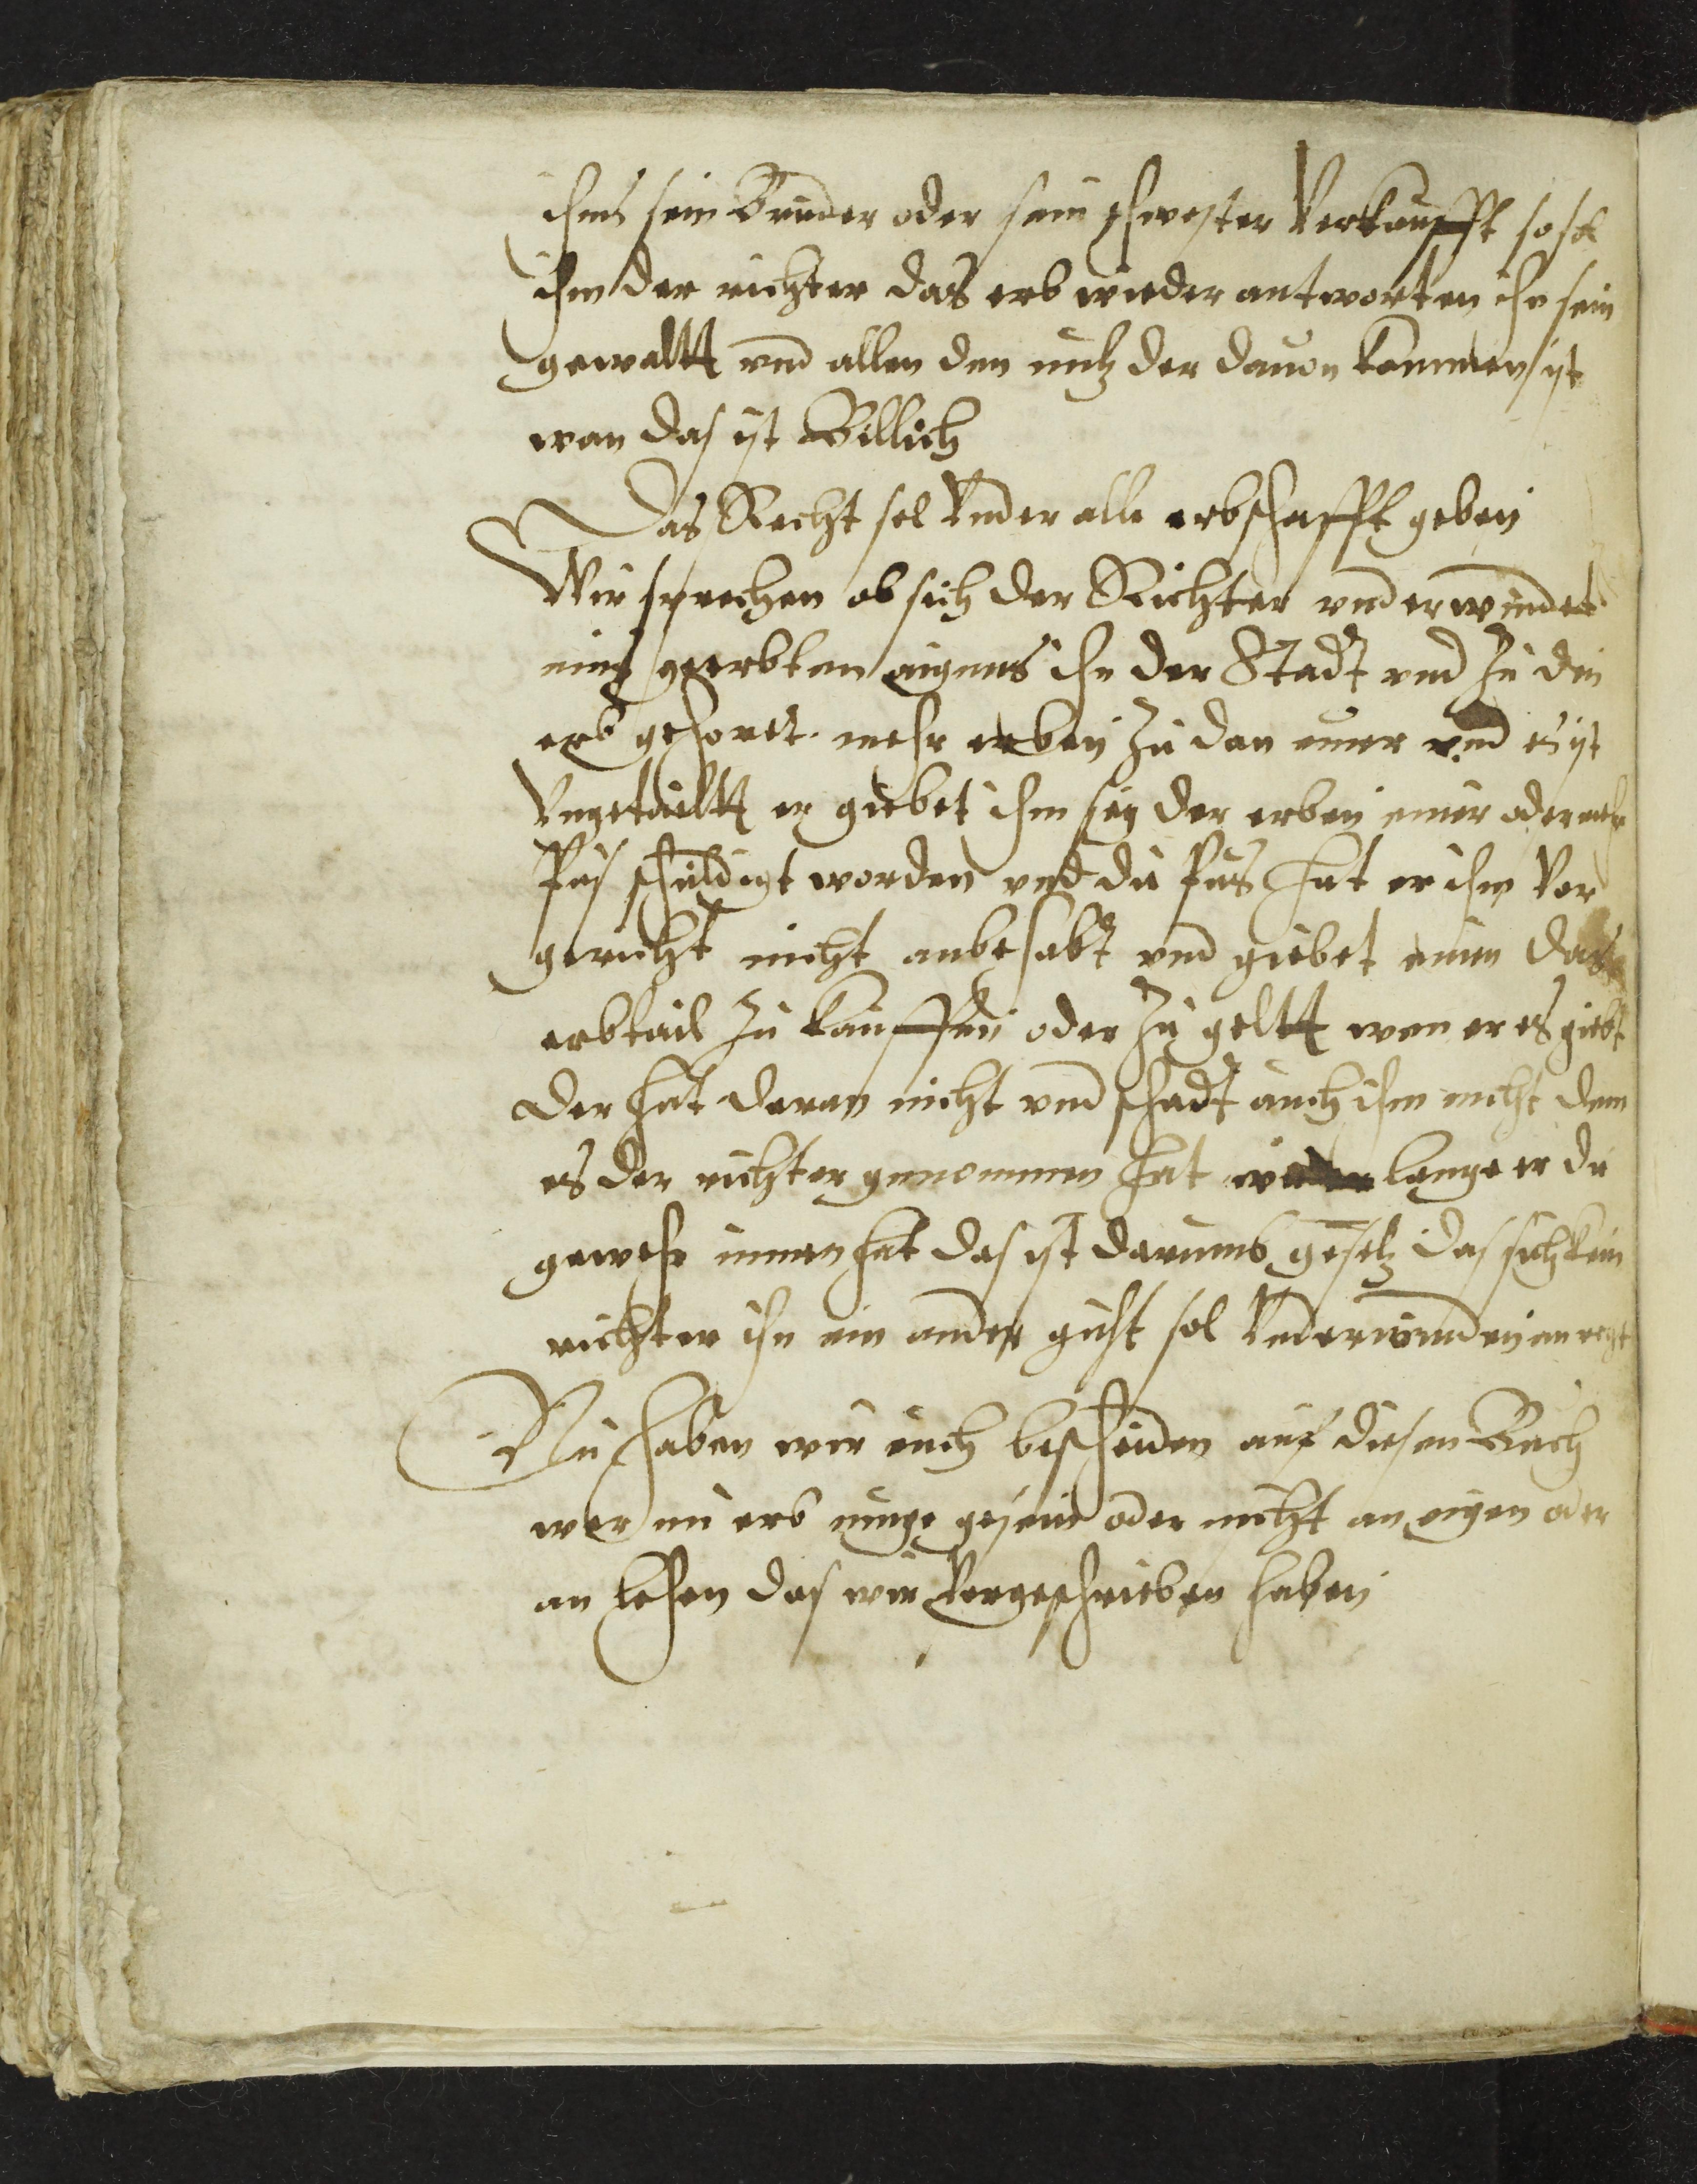 ihms sein Bruder oder sein schwester Verkaufft so sol
ihm der richter das erb wieder antworten ihn sein
gewaltt vnd allen den nutz der dauon kommen ist
wan das ist Billich
Das Recht sol Vnder alle erbschafft geben
Wir sprechen ob sich der Richter vnderwindet
eins geerbten aigens ihn der Stadt vnd zu den
erb gehoret mehr erben zu dan einer vnd es ist
Vngetailtt er giebet ihm sey der erben einer oder mehr
schuldigt worden vnd die hat er ihm Vor
gericht nicht anbehabt vnd giebet einem das
erbtail zu kauffen oder zu geltt wen er es giebt
der hat daran nicht vnd schadt auch ihm nicht dem
es der richter genommen hat wie lange er die
gewehr innen hat das ist darumb gesetz das sich kein
richter ihn ein ander guht sol Vnderwinden an recht
Nu haben wir euch bescheiden auf diesen Buch
wer nu erb muge gesein oder nicht an eigen oder
an Lehen das wir Vorgeschrieben haben